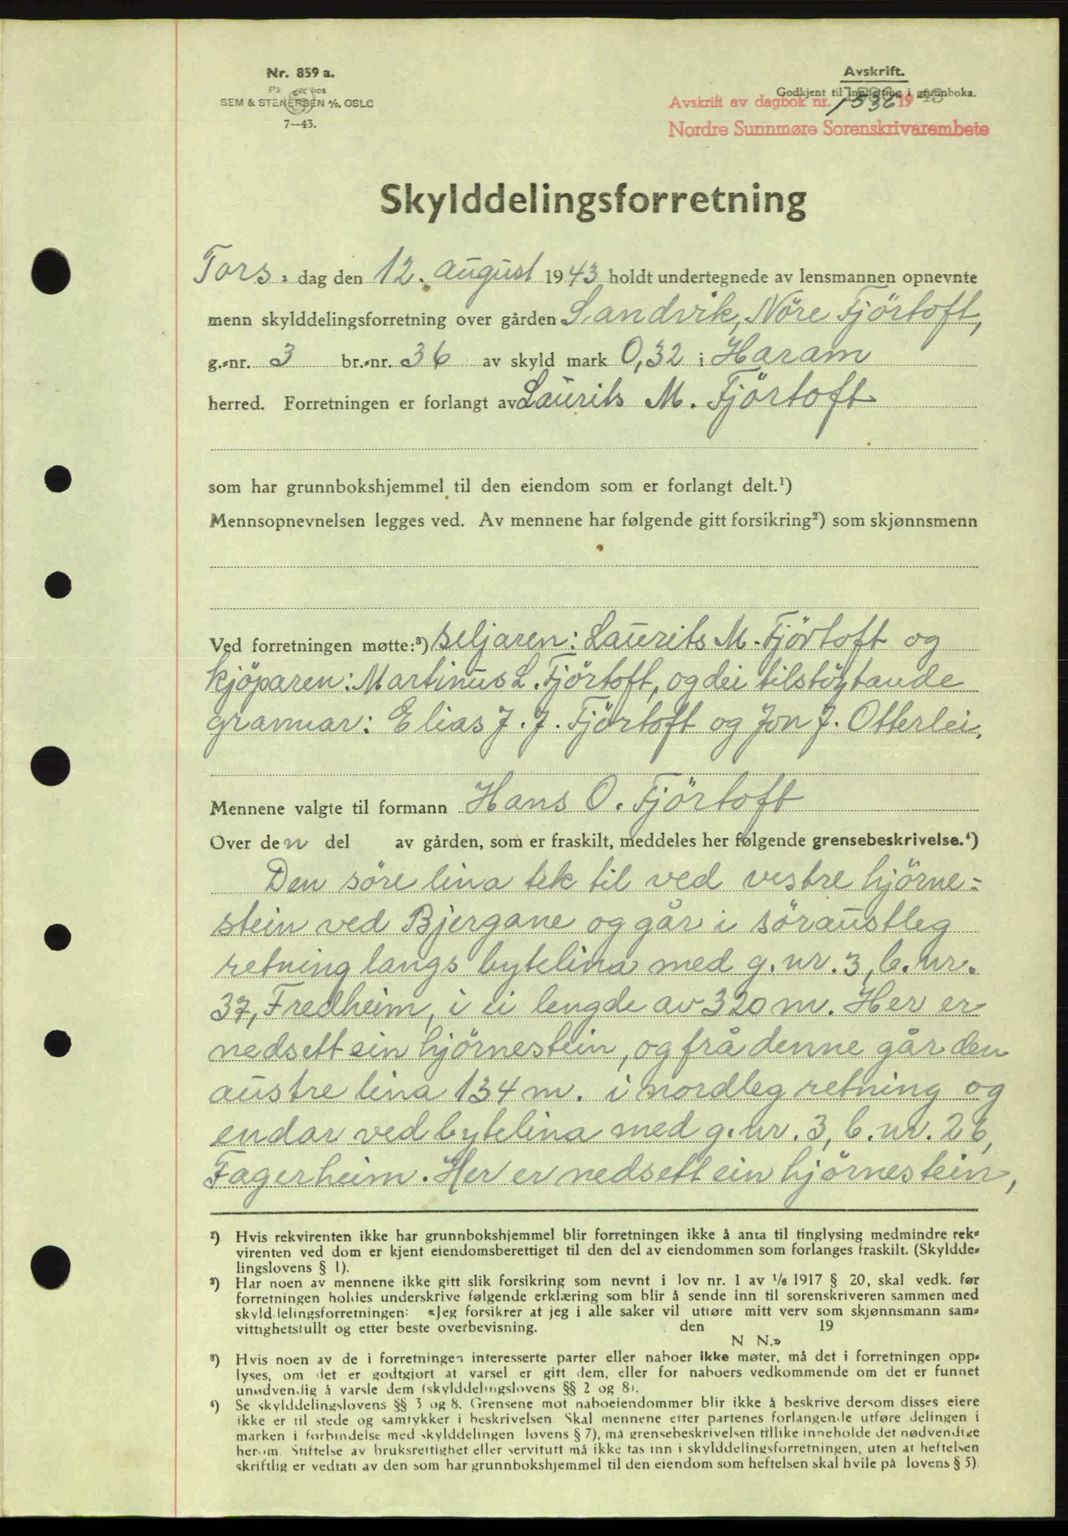 Nr. 859 a.
SEM & STENERSEN A/S, OSLO
7—43.
Avskrift.
Godkjent til innføring i grunnboka.
Avskrift av dagbok nr. 1536 19 43
Nordre Sunnmøre Sorenskrivarembete
Skylddelingsforretning
Tors. dag den 12. august 1943 holdt undertegnede av lensmannen opnevnte
menn skylddelingsforretning over gården Sandvik, Nöre Fjörtoft,
g.-nr. 3 br.-nr. 36 av skyld mark 0,32 i Haram
herred. Forretningen er forlangt av Laurits M. Fjörtoft
som har grunnbokshjemmel til den eiendom som er forlangt delt.¹)
Mennsopnevnelsen legges ved. Av mennene har følgende gitt forsikring²) som skjønnsmenn
Ved forretningen møtte:³) seljaren: Laurits M. Fjörtoft og
kjöparen: Martinus L. Fjörtoft, og dei tilstöytande
grannar: Elias J. J. Fjörtoft og Jon J. Otterlei.
Mennene valgte til formann Hans O. Fjörtoft
Over den del av gården, som er fraskilt, meddeles her følgende grensebeskrivelse.⁴)
Den söre lina tek til ved vestre hjörne-
stein ved Bjergane og går i söraustleg
retning langs bytelina med g. nr. 3, b. nr.
37, Fredheim, i ei lengde av 320 m. Her er
nedsett ein hjörnestein, og frå denne går den
austre lina 134 m. i nordleg retning og
endar ved bytelina med g. nr. 3, b. nr. 26,
Fagerheim. Her er nedsett ein hjörnestein,
¹) Hvis rekvirenten ikke har grunnbokshjemmel blir forretningen ikke å anta til tinglysing medmindre rek-
virenten ved dom er kjent eiendomsberettiget til den del av eiendommen som forlanges fraskilt. (Skyldde-
lingslovens § 1).
²) Har noen av mennene ikke gitt slik forsikring som nevnt i lov nr. 1 av 1/8 1917 § 20, skal vedk. før
forretningen holdes underskrive følgende erklæring som blir å sende inn til sorenskriveren sammen med
skylddelingsforretningen: «Jeg forsikrer at jeg i alle saker vil utføre mitt verv som skjønnsmann sam-
vittighetsfullt og etter beste overbevisning. den 19
N N.»
³) Hvis noen av de i forretningen interesserte parter eller naboer ikke møter, må det i forretningen opp-
lyses, om det er godtgjort at varsel er gitt dem, eller for naboers vedkommende om det er funnet
unødvendig å varsle dem (skylddelingslovens §§ 2 og 8).
⁴) Se skylddelingslovens §§ 3 og 8. Grensene mot naboeiendommer blir ikke å beskrive dersom disses eiere
ikke er til stede og samtykker i beskrivelsen. Skal mennene etter partenes forlangende utføre delingen i
marken i forbindelse med skylddelingen lovens § 7), må grensebeskrivelsen tillike inneholde det nødvendige
herom. Stiftelse av bruksrettighet eller servitutt må ikke tas inn i skylddelingsforretningen, uten at heftelsen
skriftlig er vedtatt av den som har grunnbokshjemmel til den eiendom som heftelsen skal hvile på lovens § 5).